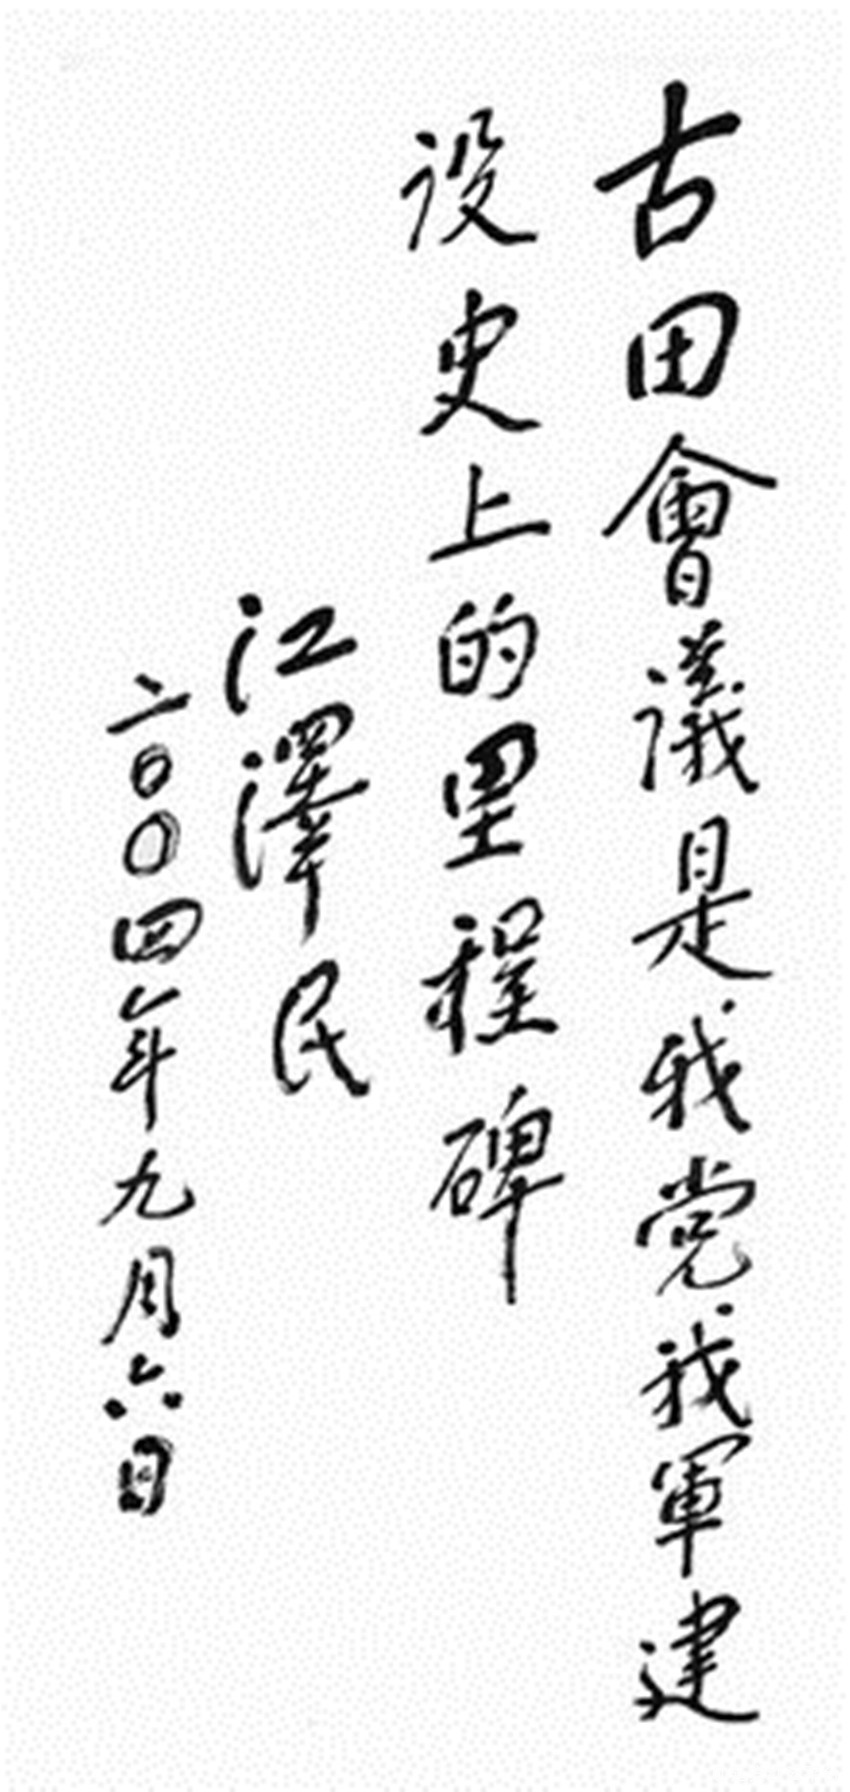 古田會議是我党我軍建
设史上的里程碑
江澤民
二００四年九月六日